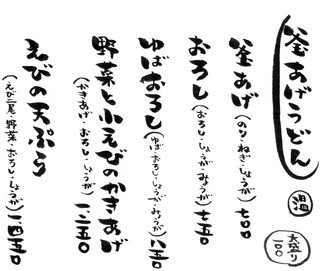 釜あげうどん
温
大盛り
一〇〇
釜あげ(のり・ねぎ・しょうが)七〇〇
おろし(おろし・しょうが・みょうが)七五〇
ゆばおろし(ゆば・おろし・しょうが・みょうが)八五〇
野菜と小えびのかきあげ
(かきあげ・おろし・しょうが)一、二五〇
えびの天ぷら
(えび二尾・野菜・おろし・しょうが)一、四五〇